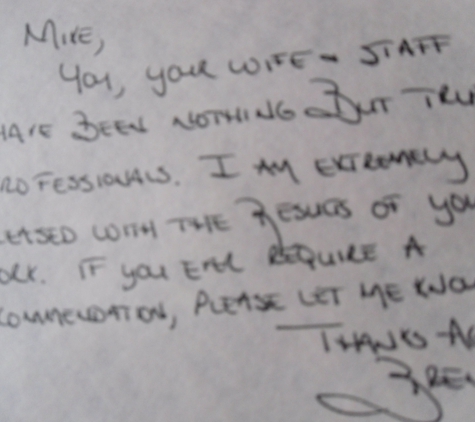 Mike,
You, your wife - staff
have been nothing but tru
rofessionals. I am extremely
leased with the results of you
ork. If you ever require a
commendation, please let me know
Thanks Ag
Bren